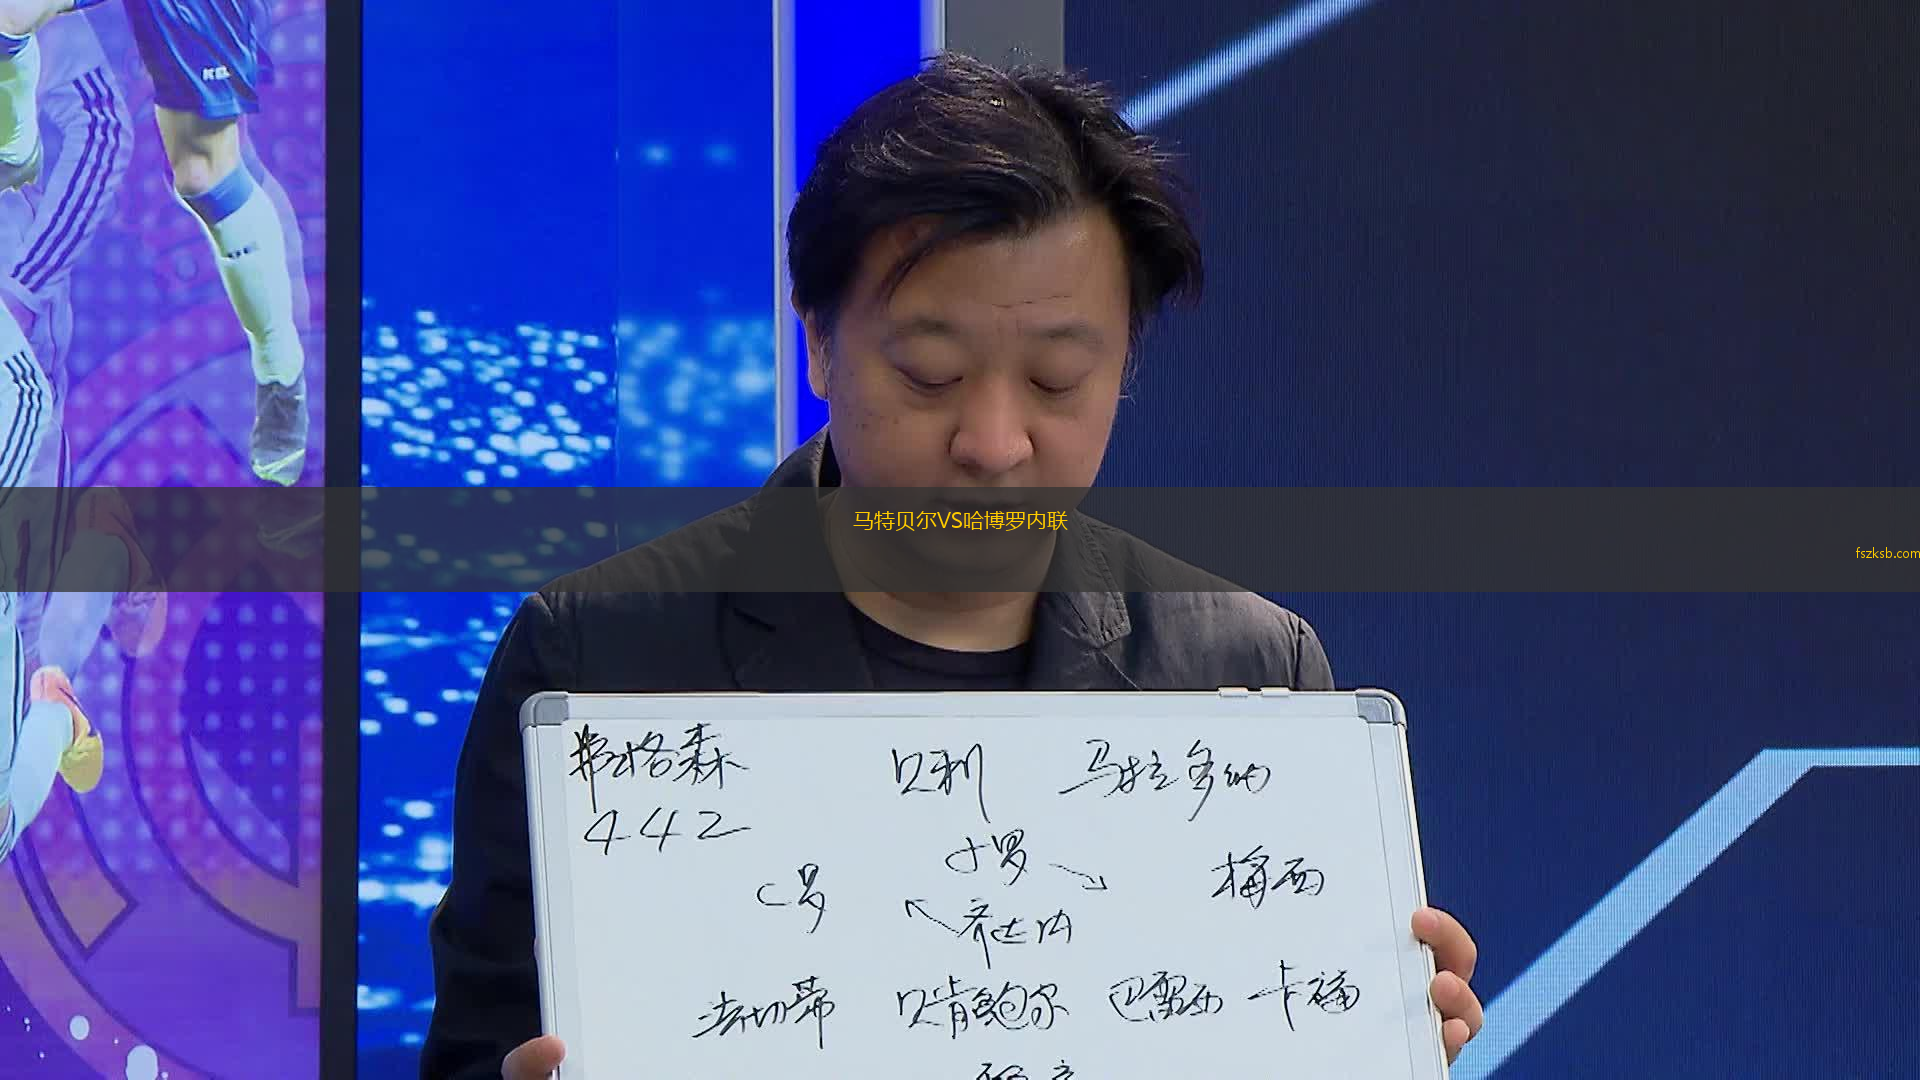 马特贝尔VS哈博罗内联
fszksb.com
弗格森 贝利 马拉多纳
442
小罗
C罗 梅西
齐达内
法切蒂 贝肯鲍尔 巴雷西 卡福